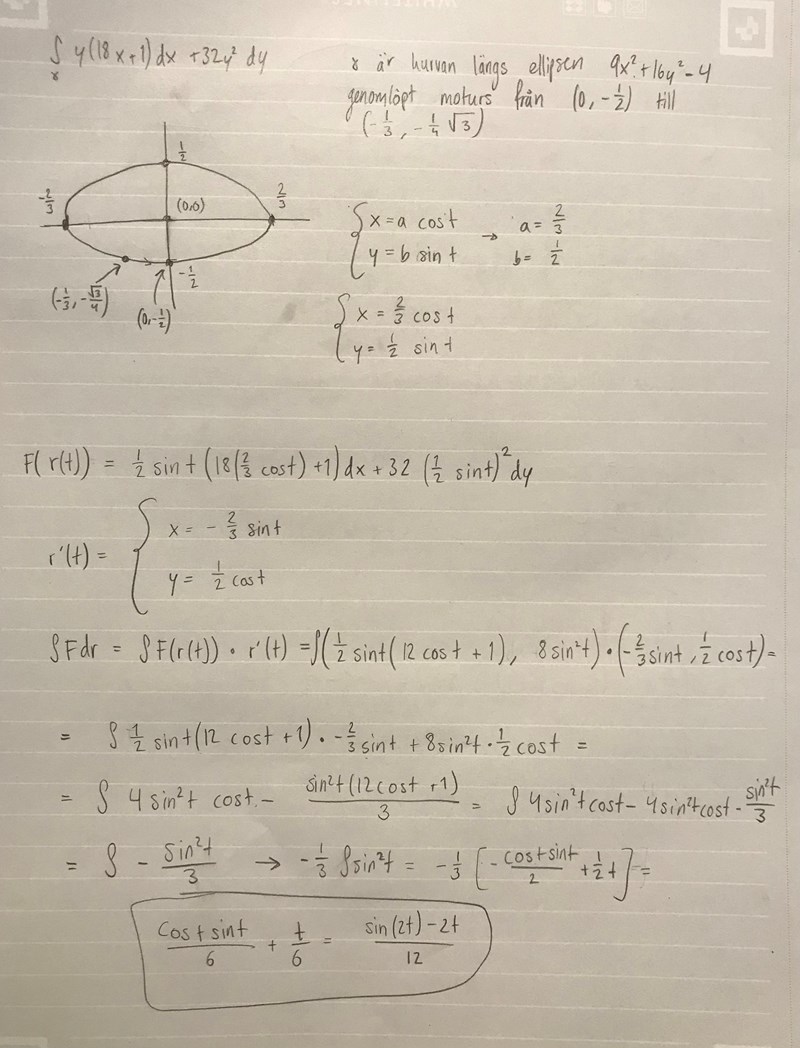 ∫γ y(18x+1)dx + 32y² dy
γ är kurvan längs ellipsen 9x²+16y²-4
genomlöpt moturs från (0, -1/2) till
(-1/3, -1/4 √3)
1/2
-2/3
2/3
(0,0)
-1/2
(-1/3, -√3/4)
(0,-1/2)
{ x = a cost → a = 2/3
{ y = b sin t b = 1/2
{ x = 2/3 cost
{ y = 1/2 sin t
F(r(t)) = 1/2 sin t (18(2/3 cost) +1) dx + 32 (1/2 sint)² dy
r'(t) = { x = - 2/3 sin t
{ y = 1/2 cost
∫Fdr = ∫F(r(t)) • r'(t) = ∫(1/2 sint(12 cost +1), 8sin²t) • (-2/3 sint, 1/2 cost) =
= ∫ 1/2 sint(12 cost +1) • -2/3 sint + 8sin²t • 1/2 cost =
= ∫ 4 sin²t cost - sin²t(12cost +1)/3 = ∫ 4sin²t cost - 4sin²t cost - sin²t/3
= ∫ - sin²t/3 → -1/3 ∫sin²t = -1/3 [-cost sint/2 + 1/2 t] =
cost sint/6 + t/6 = sin(2t)-2t/12